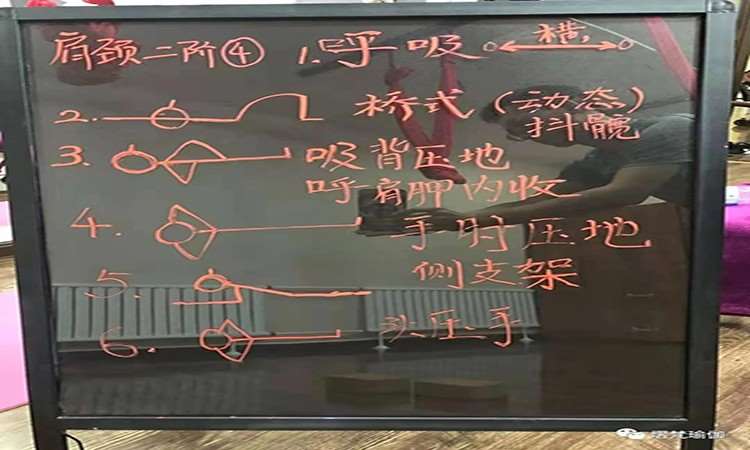 肩颈二阶④ 1.呼吸 横
2. 桥式（动态）
抖髋
3. 吸背压地
呼肩胛内收
4. 手肘压地
5. 侧支架
6. 头压手
瑜伽